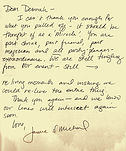 Dear Dennis –
I can't thank you enough for
what you pulled off – it should be
thought of as a miracle. You are
part shrink, part friend, part
magician and all party-planner-
extraordinaire. We are still
from our event – still
re living moments and wishing we
could re-live the entire thing.
Thank you again – and we know
our lives will intersect again
soon.
Love,